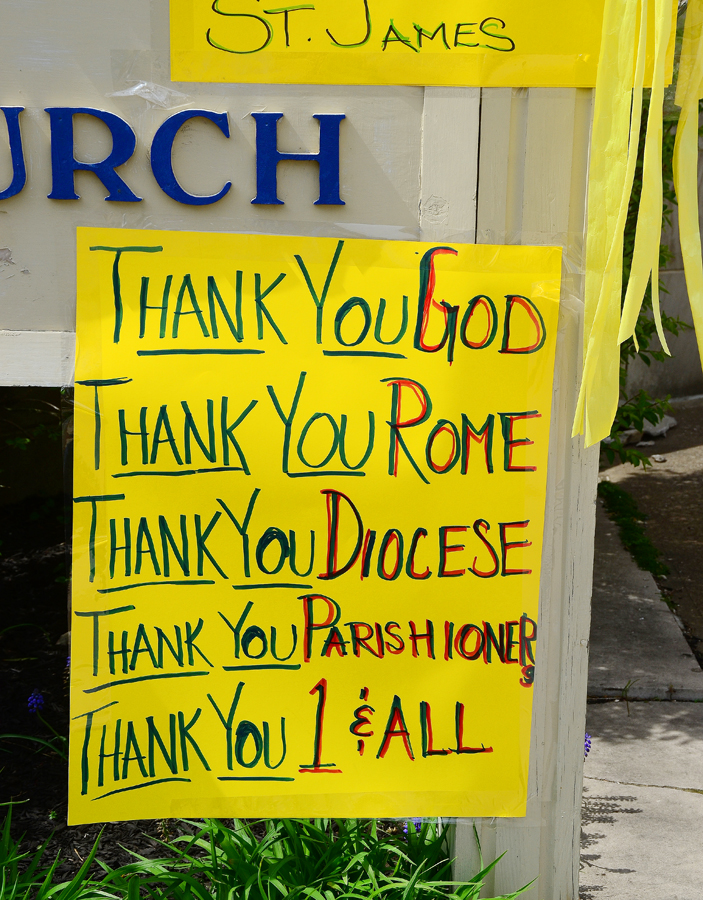 ST. JAMES
URCH
THANK YOU GOD
THANK YOU ROME
THANK YOU DIOCESE
THANK YOU PARISHIONERS
THANK YOU 1 & ALL